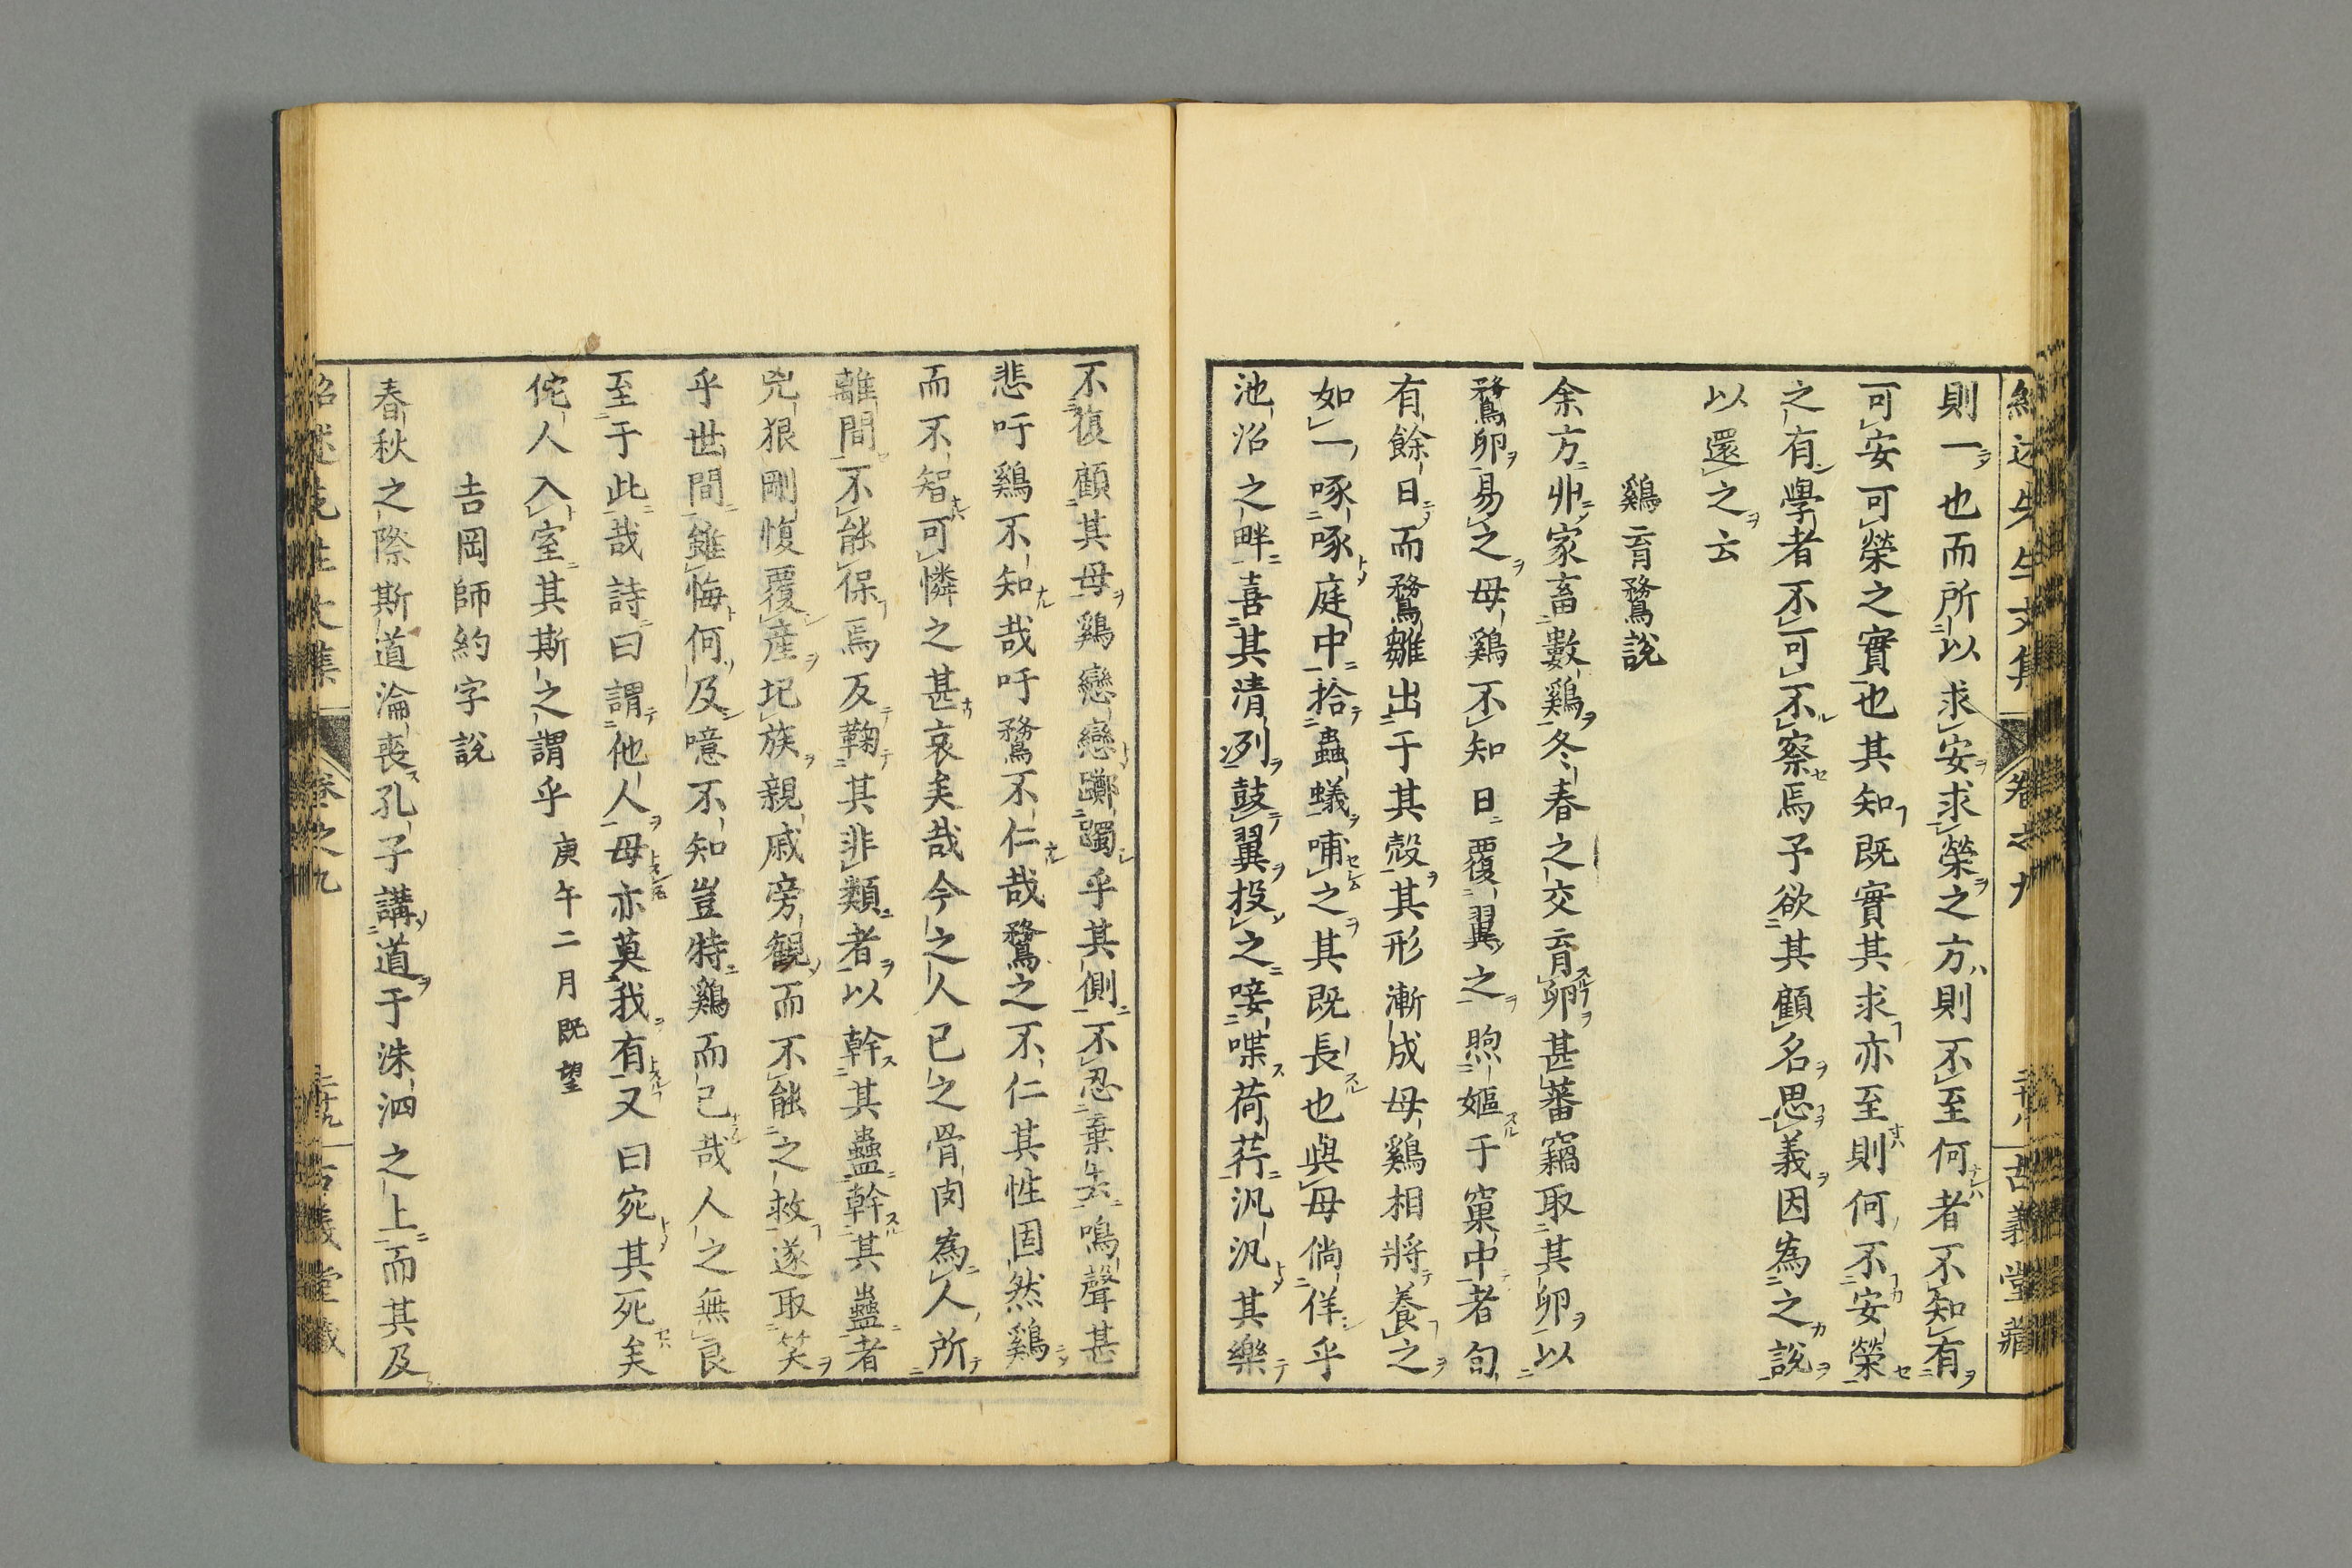 紹述先生文集 卷之九 二十八 古義堂藏
則一也而所以求安求榮之方則不至何者不知有
可安可榮之實也其知既實其求亦至則何不安榮
之有學者不可不察焉予欲其顧名思義因為之說
以還之云
鷄育鶩說
余方丱家畜數鷄冬春之交育卵甚蕃竊取其卵以
鶩卵易之母鷄不知日覆翼之煦嫗于窠中者旬
有餘日而鶩雛出于其殼其形漸成母鷄相將養之
如一啄啄庭中拾蟲蟻哺之其既長也與母倘佯乎
池沼之畔喜其清冽鼓翼投之唼喋荷荇汎汎其樂
不復顧其母鷄戀戀躑躅乎其側不忍棄去鳴聲甚
悲吁鷄不知哉吁鶩不仁哉鶩之不仁其性固然鷄
而不智可憐之甚哀矣哉今之人已之骨肉為人所
離間不能保焉反鞠其非類者以幹其蠱幹其蠱者
兇狠剛愎覆產圮族親戚旁觀而不能之救遂取笑
乎世間雖悔何及噫不知豈特鷄而已哉人之無良
至于此哉詩曰謂他人母亦莫我有又曰宛其死矣
侘人入室其斯之謂乎 庚午二月既望
吉岡師約字說
春秋之際斯道淪喪孔子講道于洙泗之上而其及
紹述先生文集 卷之九 二十九 古義堂藏